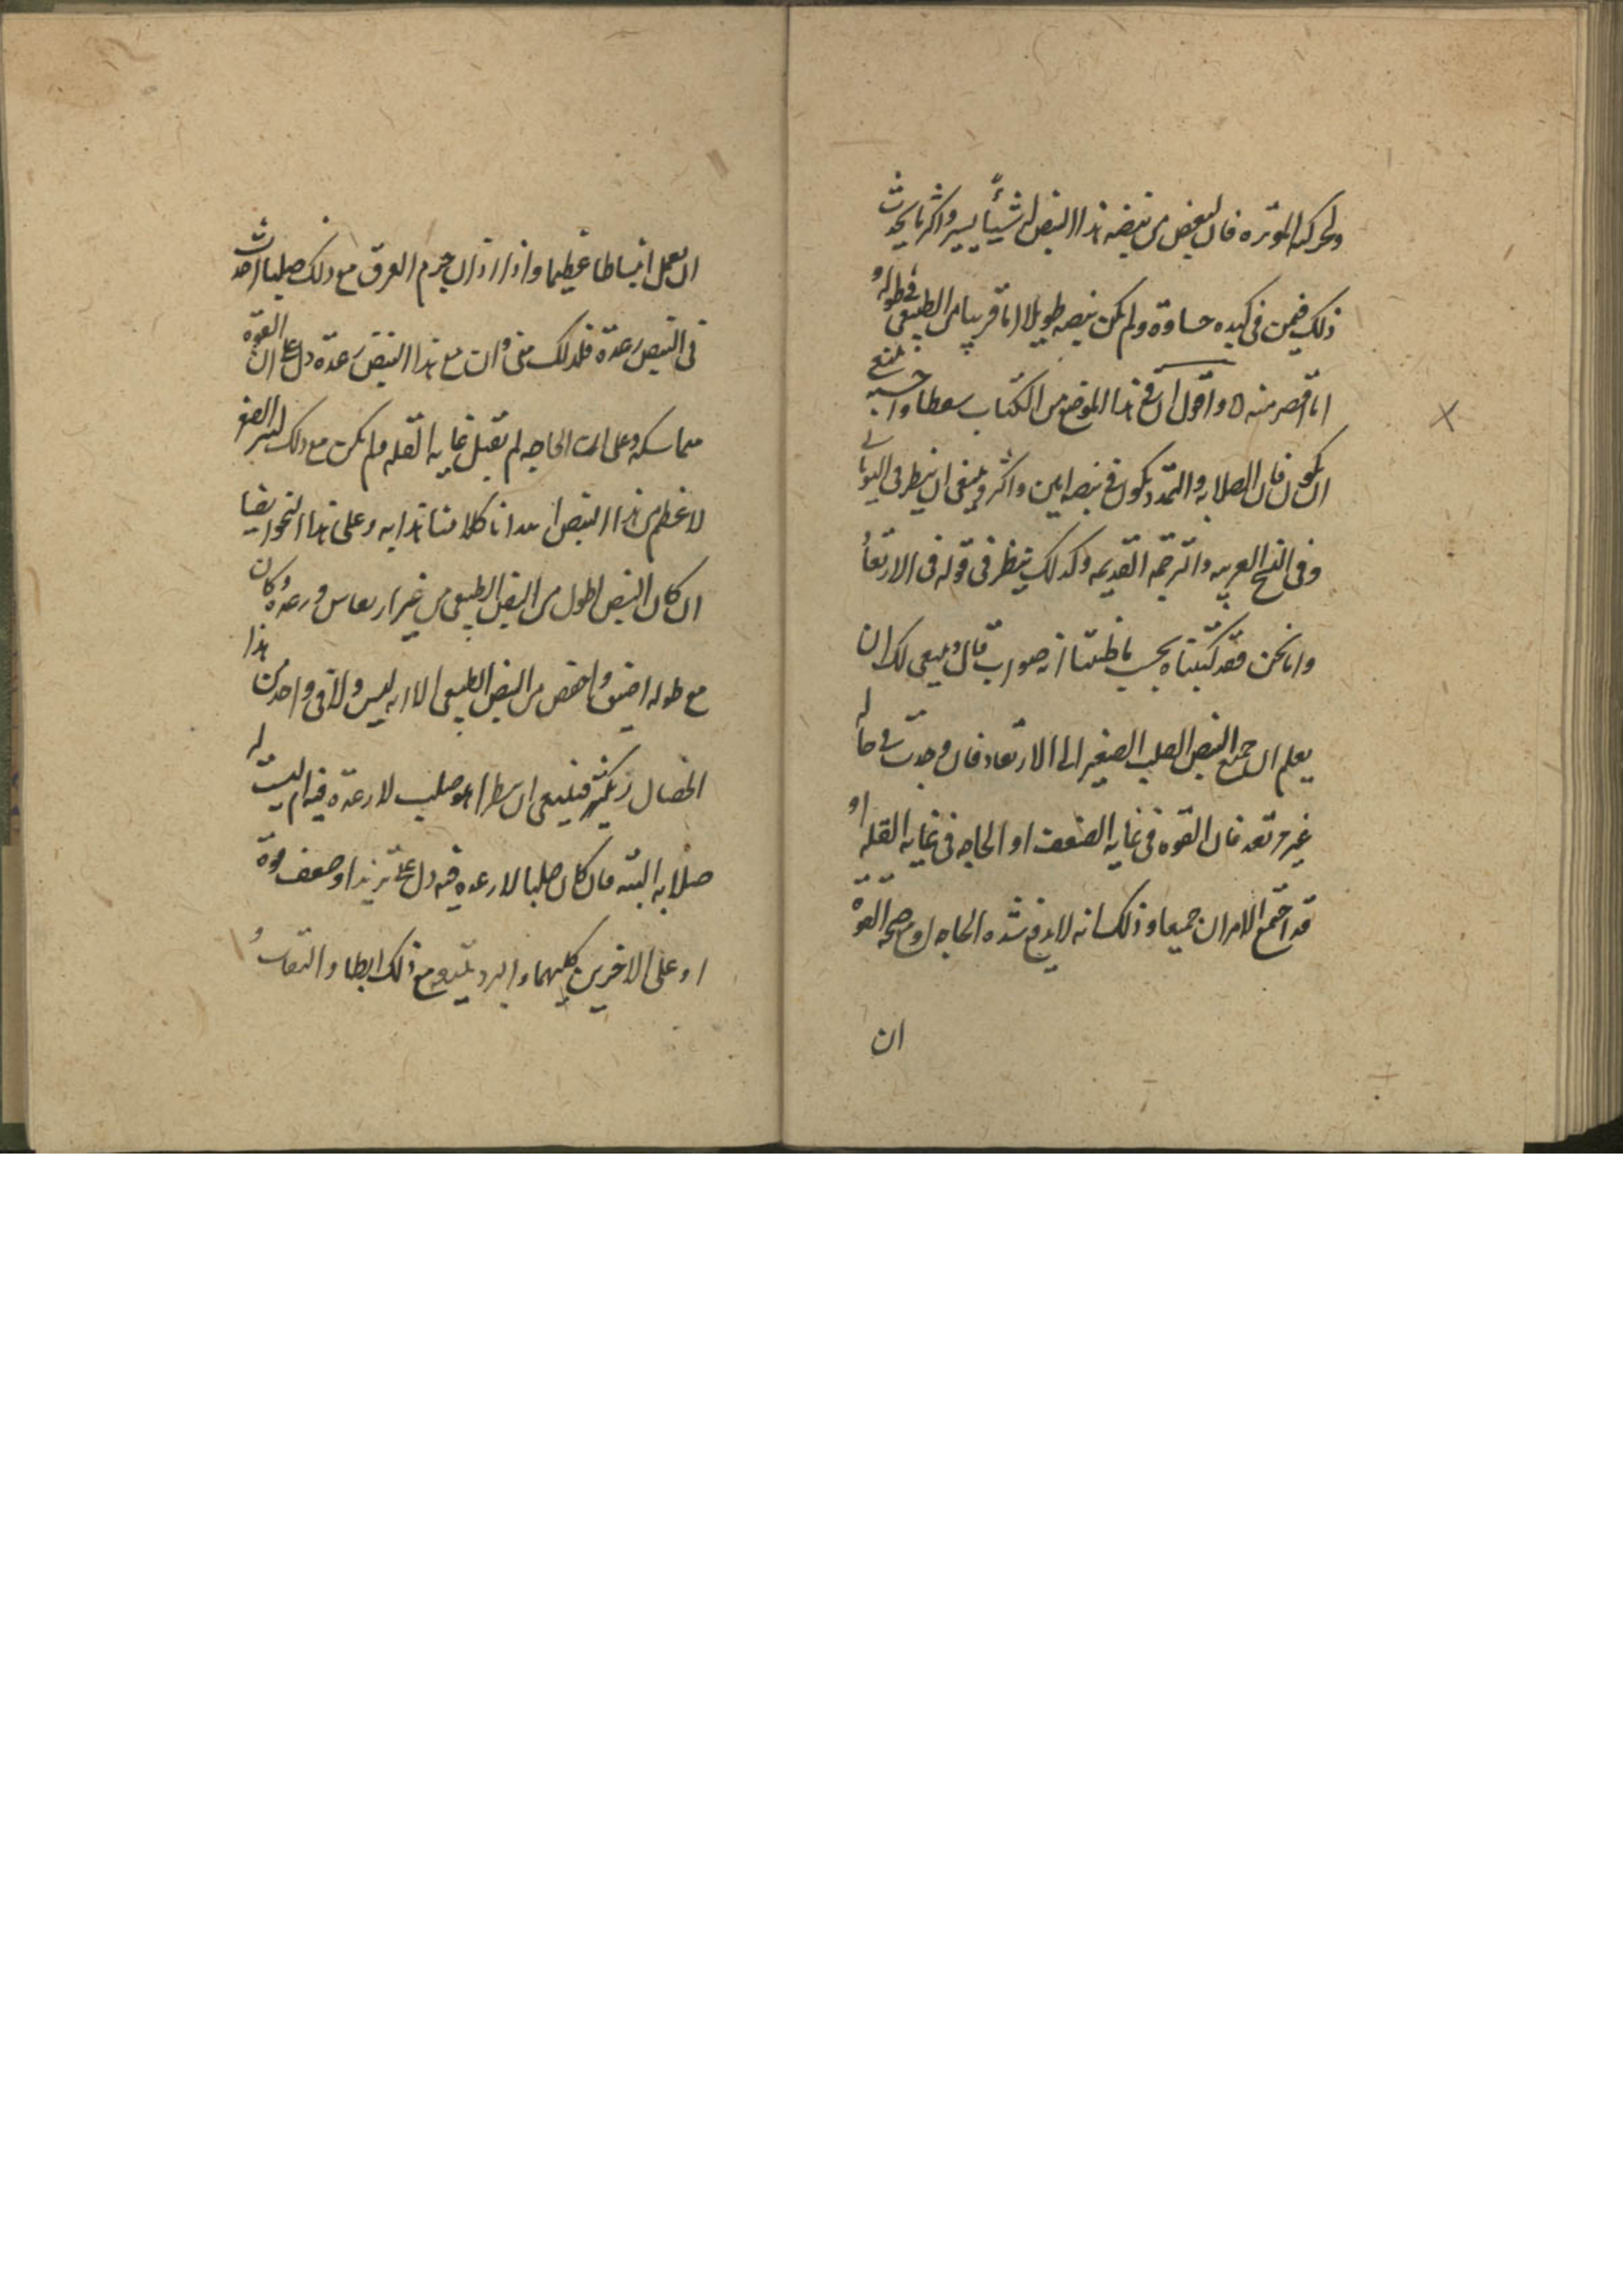 ولحركته الموتره فان لبعض من نبضه هذا النبض له شيئا يسير واكثر ما يحدث
ذلك فيمن في كبده جساوة ولم يكن نبضه طويلا اما قريبا من الطبيعي في طوله و
اما اقصر منه ه واقول ان في هذا الموضع من الكتاب سقطا واحسبه
ان يكون فان الصلابه والتمدد يكون في نبضه ابين واكثر وينبغي ان ينظر في اليوناني
وفي النسخ العربيه والترجمه القديمه وكذلك ينظر في قوله في الارتعا
واما نحن فقد كتبناه بحسب ما ظننا انه صواب قال وينبغي لك ان
يعلم ان جميع النبض الصلب الصغير الى الارتعاد فان وجدت في حاله
غير مرتعد فان القوه في غايه الضعف او الحاجه في غايه القله او
قد اجتمع الامران جميعا وذلك انه لا يدفع شده الحاجه او صحه القوة
ان
ان يعمل انبساطا عظيما واذا اراد ان جرم العرق مع ذلك صلبا احدث
في النبض رعدة فلذلك متى كانت مع هذا النبض رعدة دل على ان القوة
متماسكه وعلى ان الحاجه لم تقبل غايه القله ولم يكن مع ذلك
لا عظم من هذا النبض كلامنا هذا به وعلى هذا النحو ايضا
ان كان النبض اطول من النبض الطبيعي من غير ارتعاش ورعده وكان
مع طوله اضيق واخفض من النبض الطبيعي الا انه ليس ولا في واحد من هذا
الخصال بكثير فينبغي ان ينظر اهو صلب لا رعدة فيه ام ليست له
صلابه البته فان كان صلبا لا رعده فيه دل على تزيد او ضعف قوة
او على الاخرين كليهما والبرد يتبعه مع ذلك ابطا والتفاوت